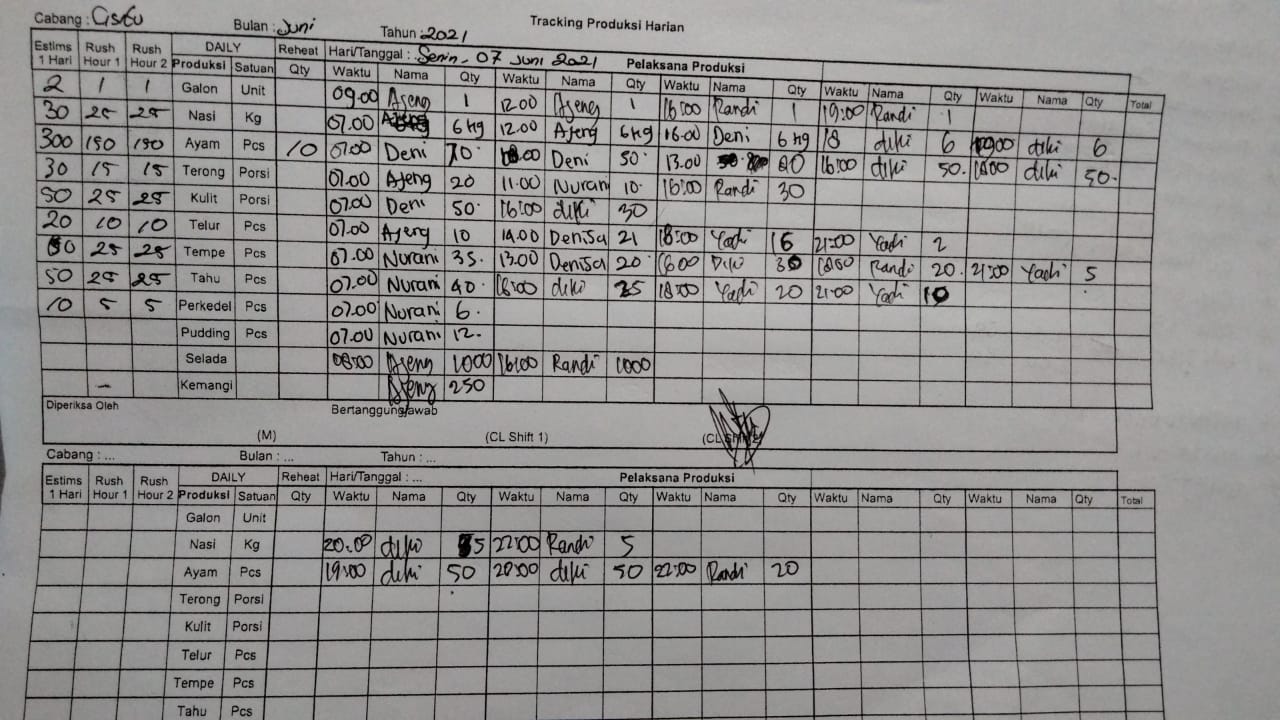 Cabang : Cisitu Bulan : Juni Tahun : 2021 Tracking Produksi Harian
Estims 1 Hari Rush Hour 1 Rush Hour 2 DAILY Reheat Hari/Tanggal : Senin, 07 Juni 2021 Pelaksana Produksi
Produksi Satuan Qty Waktu Nama Qty Waktu Nama Qty Waktu Nama Qty Waktu Nama Qty Waktu Nama Qty Total
2 1 1 Galon Unit 09.00 Ajeng 1 12.00 Ajeng 1 16:00 Randi 1 19:00 Randi 1
30 25 25 Nasi Kg 07.00 Ajeng 6 kg 12.00 Ajeng 6 kg 16.00 Deni 6 kg 18 diki 6 diki 6
300 150 150 Ayam Pcs 10 07.00 Deni 70 Deni 50 13.00 16:00 diki 50 1800 diki 50
30 15 15 Terong Porsi 07.00 Ajeng 20 11.00 Nurani 10 16:00 Randi 30
50 25 25 Kulit Porsi 07.00 Deni 50 16:00 diki 30
20 10 10 Telur Pcs 07.00 Ajeng 10 14.00 Denisa 21 18:00 Yadi 21:00 Yadi 2
25 25 Tempe Pcs 07.00 Nurani 35 13.00 Denisa 20 1600 Diki Randi 20 21:00 Yadi 5
50 25 25 Tahu Pcs 07.00 Nurani 40 diki 18:00 Yadi 20 21:00 Yadi 10
10 5 5 Perkedel Pcs 07.00 Nurani 6
Pudding Pcs 07.00 Nurani 12
Selada 08:00 Ajeng 1000 16:00 Randi 1000
- Kemangi Ajeng 250
Diperiksa Oleh Bertanggungjawab
(M) (CL Shift 1) (CL Shift 2)
Cabang : ... Bulan : ... Tahun : ...
Estims 1 Hari Rush Hour 1 Rush Hour 2 DAILY Reheat Hari/Tanggal : ... Pelaksana Produksi
Produksi Satuan Qty Waktu Nama Qty Waktu Nama Qty Waktu Nama Qty Waktu Nama Qty Waktu Nama Qty Total
Galon Unit
Nasi Kg 20.00 diki 5 22:00 Randi 5
Ayam Pcs 19:00 diki 50 20:00 diki 50 22:00 Randi 20
Terong Porsi
Kulit Porsi
Telur Pcs
Tempe Pcs
Tahu Pcs